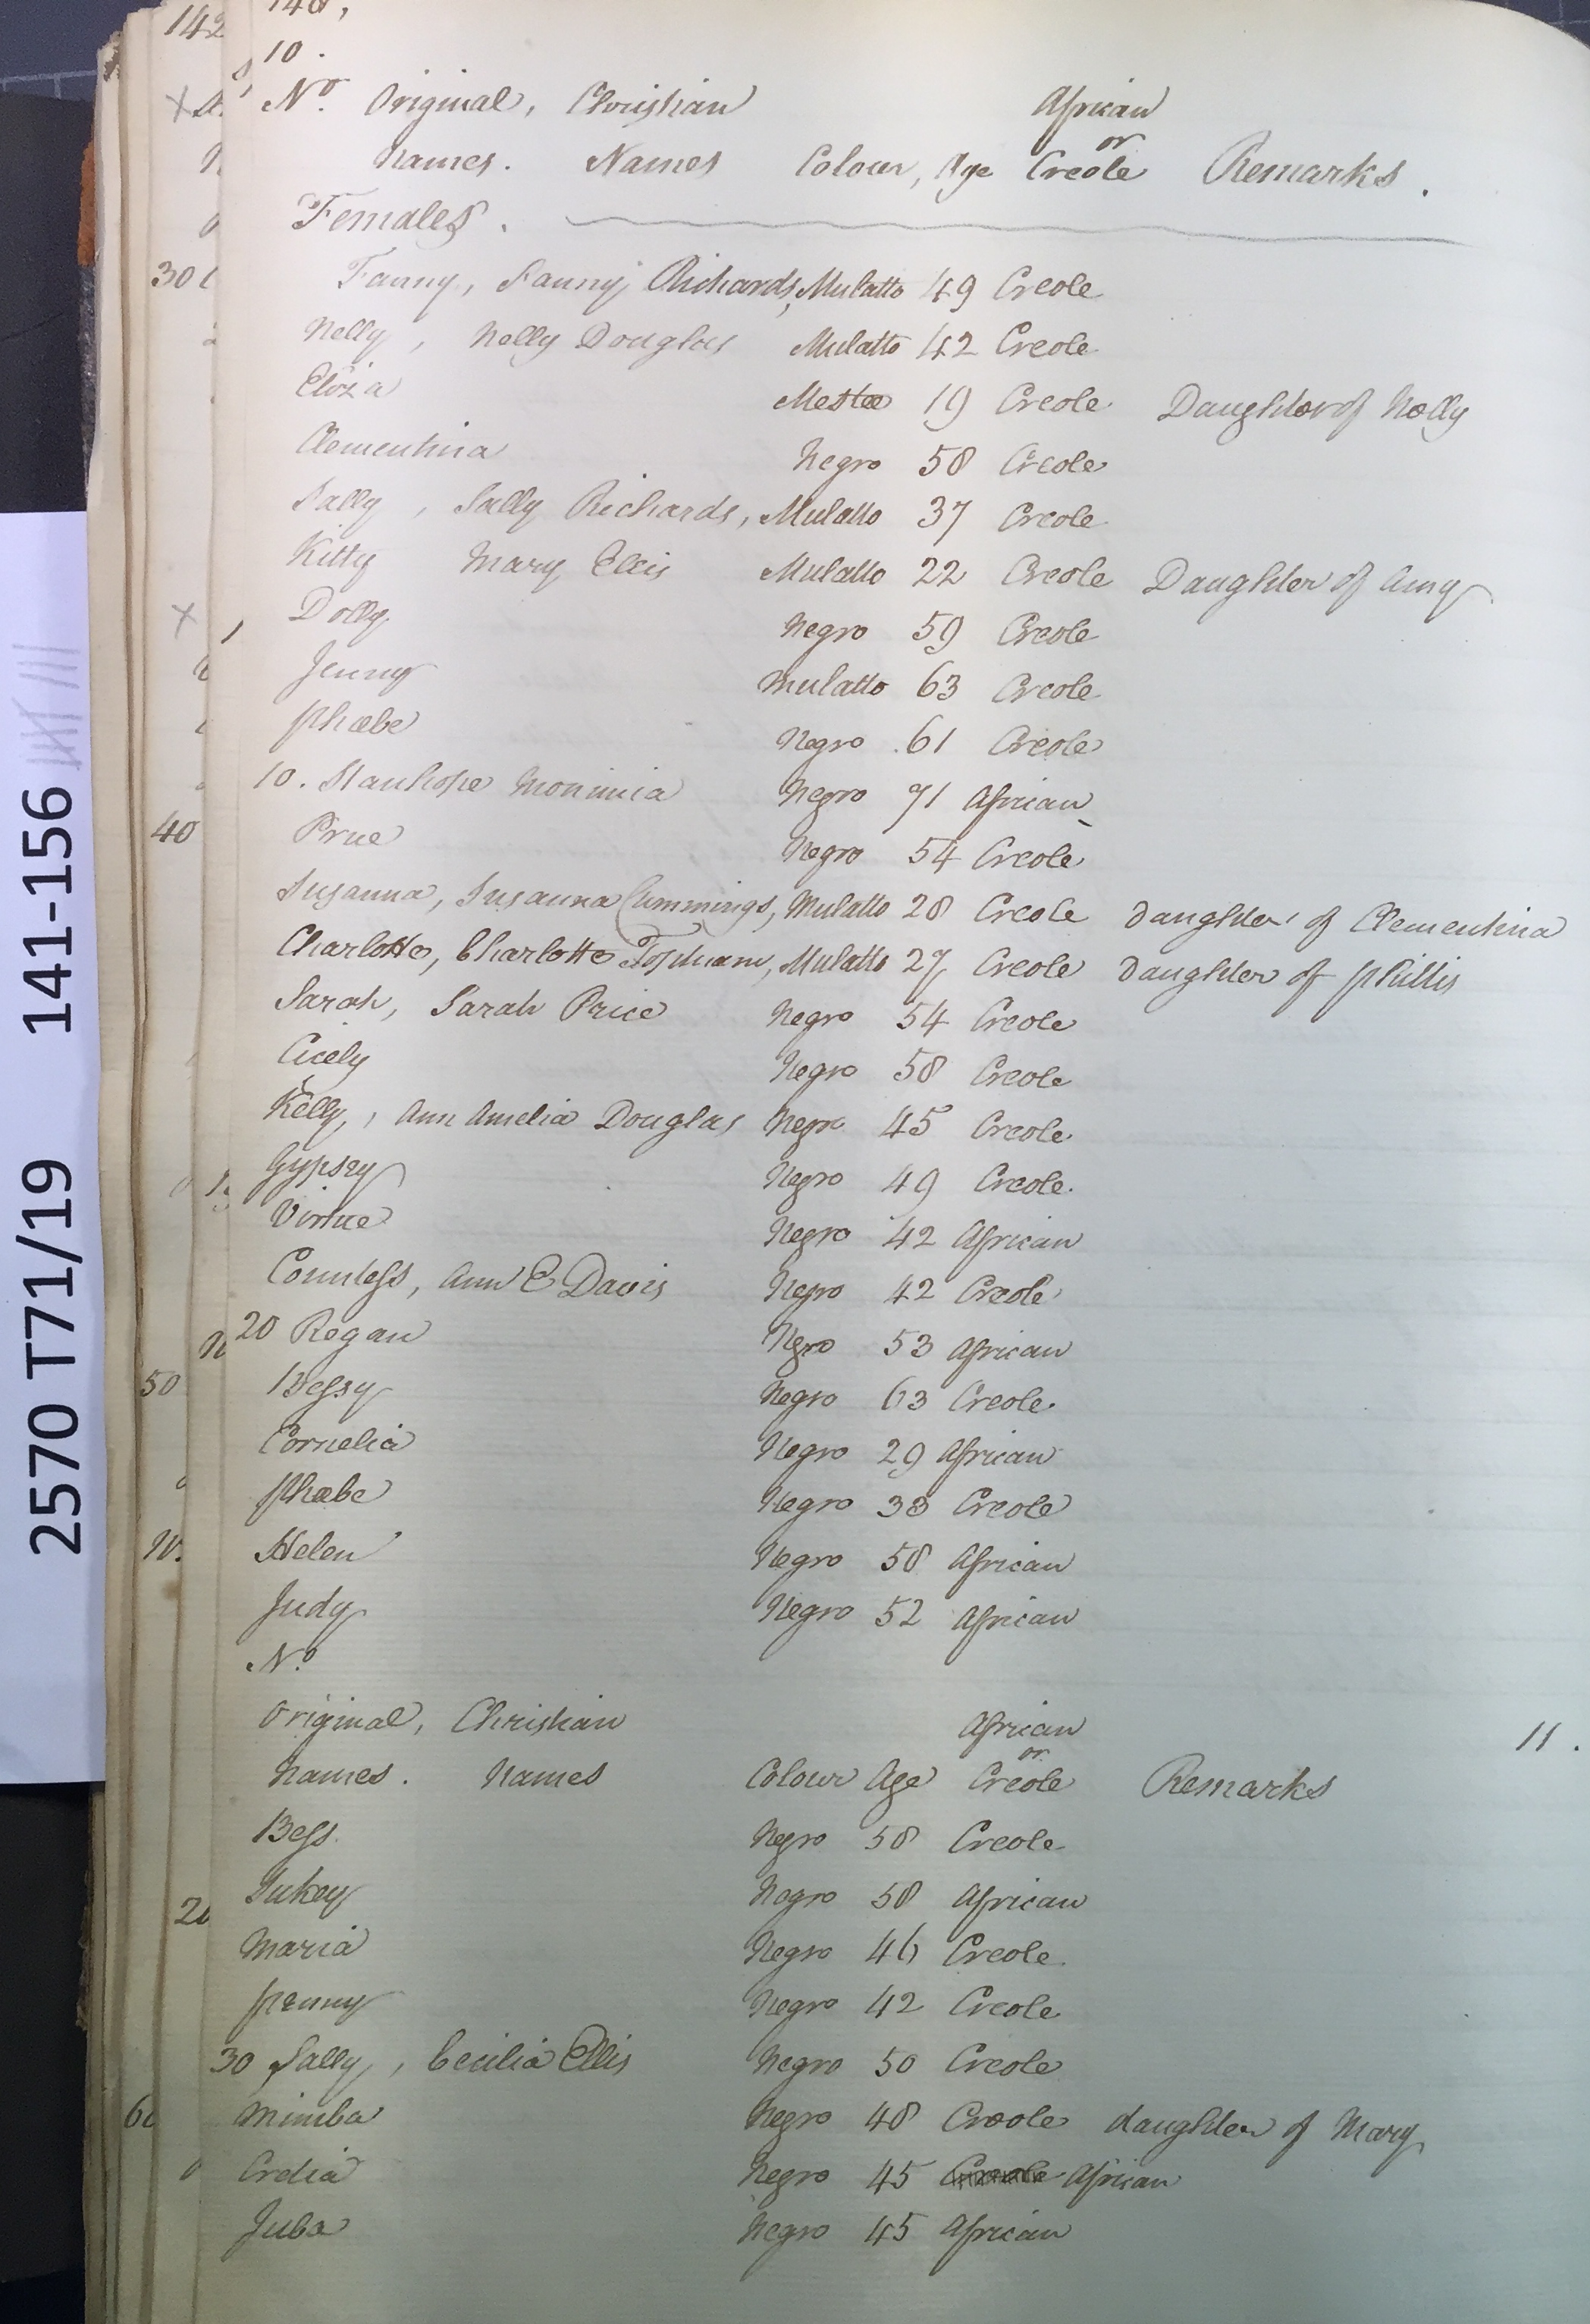 2570 T71/19 141-156
142
140,
10.
No. Original, Christian African
or
Names. Names Colour, Age Creole Remarks.
Females.
30 Fanny, Fanny Richards, Mulatto 49 Creole
Nelly, Nelly Douglas Mulatto 42 Creole
Eliza Mestee 19 Creole Daughter of Nelly
Clementina Negro 58 Creole
Sally, Sally Richards, Mulatto 37 Creole
Kitty Mary Ellis Mulatto 22 Creole Daughter of Amy
Dolly Negro 59 Creole
Jenny Mulatto 63 Creole
Phœbe Negro 61 Creole
10. Stanhope Monimia Negro 71 African
40 Prue Negro 54 Creole
Susanna, Susanna Cummings, Mulatto 28 Creole daughter of Clementina
Charlotte, Charlotte Topham, Mulatto 27 Creole daughter of Phillis
Sarah, Sarah Price Negro 54 Creole
Cicely Negro 58 Creole
Kelly, Ann Amelia Douglas Negro 45 Creole
Gypsey Negro 49 Creole.
Virtue Negro 42 African
Countess, Ann E Davis Negro 42 Creole
20 Regan Negro 53 African
50 Bessy Negro 63 Creole
Cornelia Negro 29 African
Phœbe Negro 33 Creole
Helen Negro 58 African
Judy Negro 52 African
No.
Original, Christian African 11.
or
Names. Names Colour Age Creole Remarks
Bess. Negro 58 Creole
Sukey Negro 58 African
Maria Negro 46 Creole
Penny Negro 42 Creole
30 Sally, Cecilia Ellis Negro 50 Creole
Mimba Negro 48 Creole daughter of Mary
Crelia Negro 45 Creole African
Juba Negro 45 African